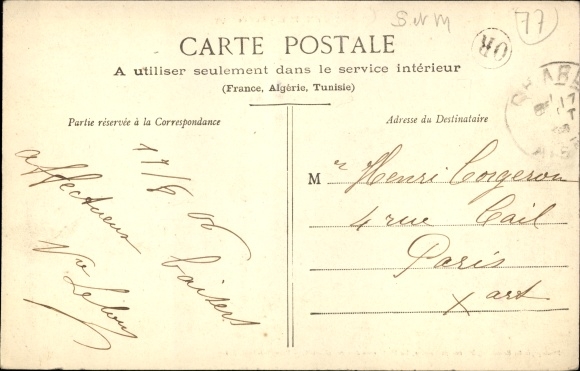 S N M
77
CARTE POSTALE
OR
A utiliser seulement dans le service intérieur
(France, Algérie, Tunisie)
Partie réservée à la Correspondance
17/6 06
affectueux baisers
Vve
Adresse du Destinataire
Mr Henri Corgeron
4 rue Cail
Paris
X art